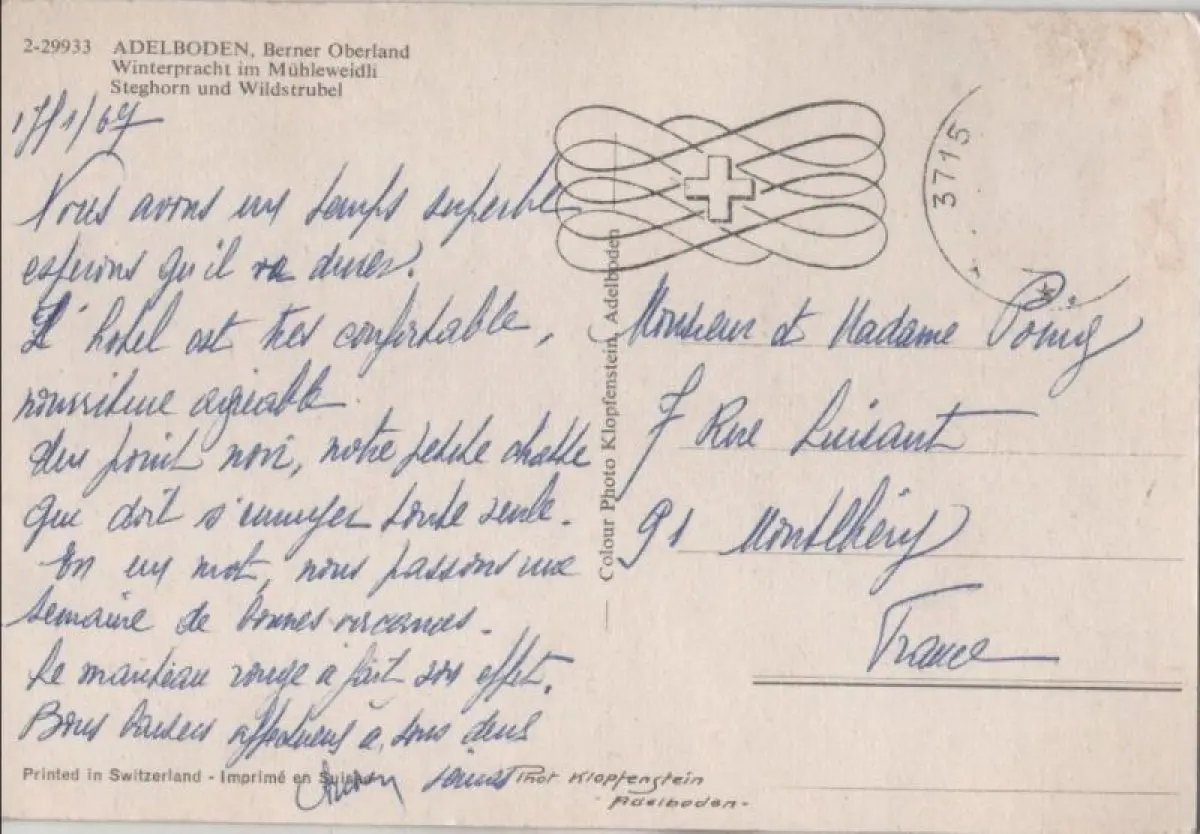 2-29933 ADELBODEN, Berner Oberland
Winterpracht im Mühleweidli
Steghorn und Wildstrubel
17/1/67
Nous avons un temps superbe
espérons qu'il va durer.
L'hotel est très confortable,
nourriture agréable
point noir, notre petite chatte
que doit s'ennuyer toute seule.
En un mot, nous passons une
semaine de bonnes vacances.
Le manteau rouge a fait son effet.
Bons baisers affectueux à tous deux
Printed in Switzerland - Imprimé en Suisse
Phot Klopfenstein
Adelboden-
Colour Photo Klopfenstein, Adelboden
3715
Monsieur et Madame
7 Rue Luisant
91 Montlhéry
France